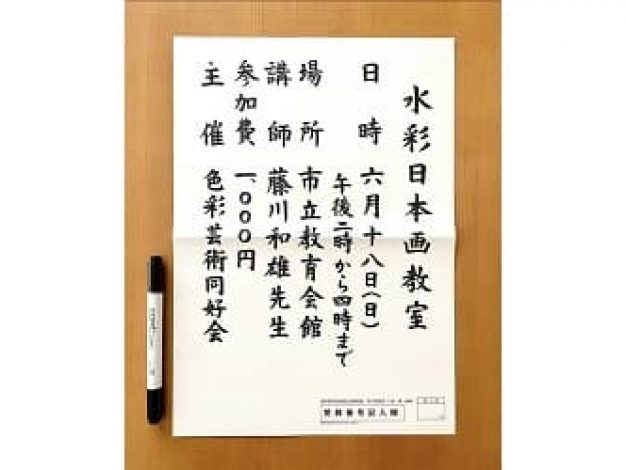 水彩日本画教室
日時 六月十八日(日)
午後二時から四時まで
場所 市立教育会館
講師 藤川和雄先生
参加費 一、〇〇〇円
主催 色彩芸術同好会